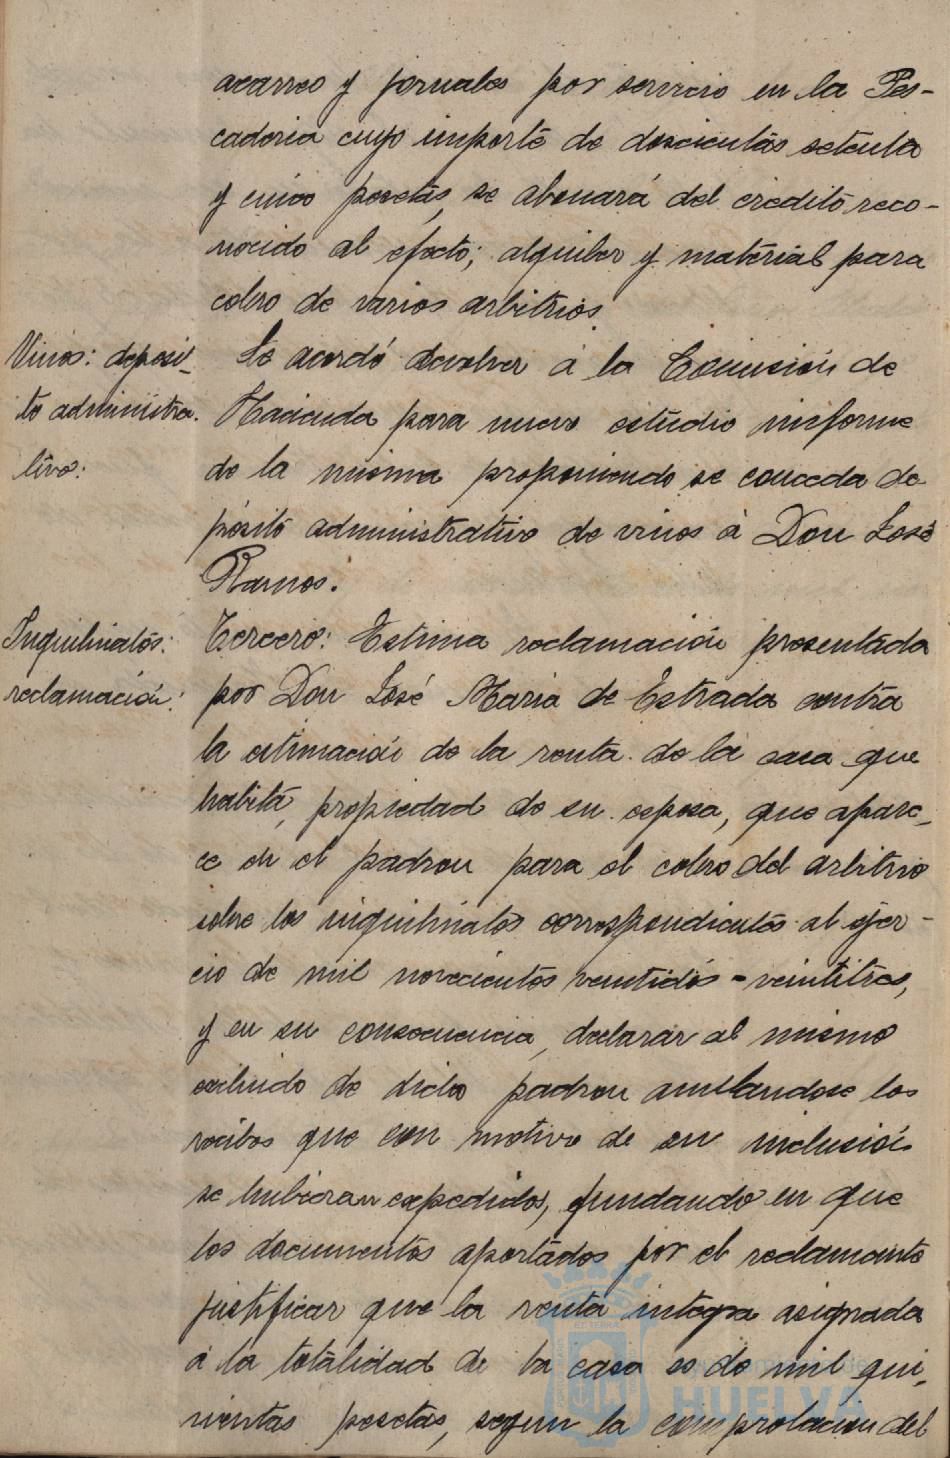 acarreo y jornales por servicio en la Pes-
caderia cuyo importe de doscientas setenta
y cinco pesetas, se abonará del crédito reco-
nocido al efecto; alquiler y material para
cobro de varios arbitrios.
Vinos: deposi-
to administra-
tivo:
Se acordó devolver á la Comisión de
Hacienda para nuevo estudio informe
de la misma proponiendo se conceda de
pósito administrativo de vinos á Don José
Ramos.
Inquilinatos:
reclamación:
Tercero: Estima reclamación presentada
por Don José Maria de Estrada contra
la estimación de la renta de la casa que
habita, propiedad de su esposa, que apare-
ce en el padron para el cobro del arbitrio
sobre los inquilinatos correspondientes al ejer-
cio de mil novecientos veintidós=veintitres,
y en su consecuencia, declarar al mismo
excluido de dicho padron anulandose los
recibos que con motivo de su inclusión
se hubieran expedido, fundando en que
los documentos aportados por el reclamante
justifican que la renta integra asignada
á la totalidad de la casa es de mil qui-
nientas pesetas, segun la comprobacion del
HUELVA